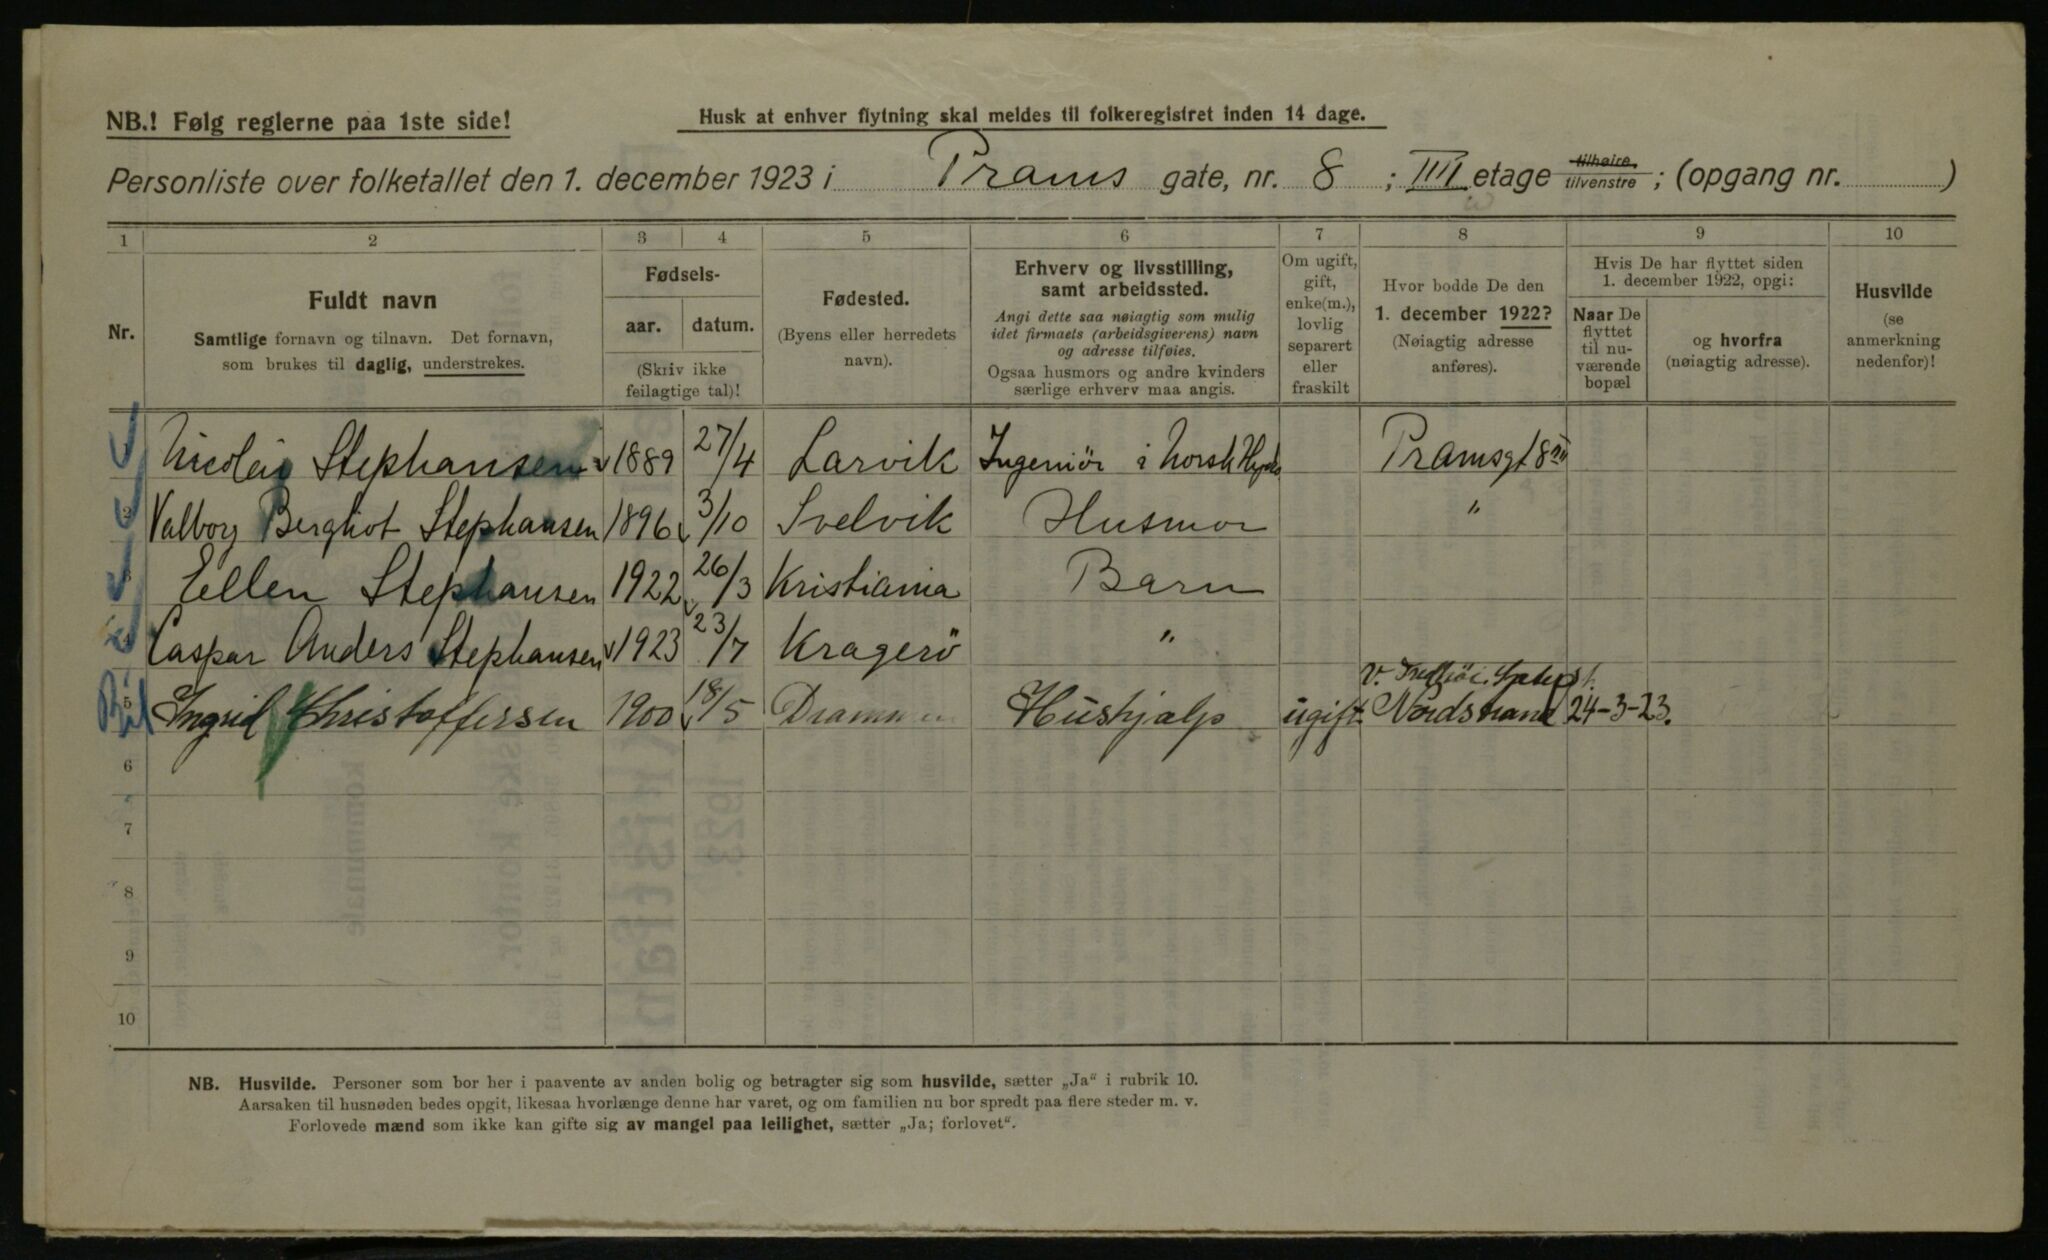 NB.! Følg reglerne paa 1ste side!
Husk at enhver flytning skal meldes til folkeregistret inden 14 dage.
Personliste over folketallet den 1. december 1923 i Prams gate, nr. 8 ; III etage tilhøire tilvenstre ; (opgang nr. )
1 2 3 4 5 6 7 8 9 10
Nr.
Fuldt navn
Samtlige fornavn og tilnavn. Det fornavn,
som brukes til daglig, understrekes.
Fødsels-
aar. datum.
(Skriv ikke
feilagtige tal)!
Fødested.
(Byens eller herredets
navn).
Erhverv og livsstilling,
samt arbeidssted.
Angi dette saa nøiagtig som mulig
idet firmaets (arbeidsgiverens) navn
og adresse tilføies.
Ogsaa husmors og andre kvinders
særlige erhverv maa angis.
Om ugift,
gift,
enke(m.),
lovlig
separert
eller
fraskilt
Hvor bodde De den
1. december 1922?
(Nøiagtig adresse
anføres).
Hvis De har flyttet siden
1. december 1922, opgi:
Naar De
flyttet
til nu-
værende
bopæl
og hvorfra
(nøiagtig adresse).
Husvilde
(se
anmerkning
nedenfor)!
Nicolai Stephansen 1889 27/4 Larvik Ingeniør i Norsk Hydro Pramsgt 8 III
2 Valborg Bergliot Stephansen 1896 3/10 Svelvik Husmor "
3 Ellen Stephansen 1922 26/3 Kristiania Barn
4 Caspar Anders Stephansen 1923 23/7 Kragerö "
5 Ingrid Christoffersen 1900 18/5 Drammen Hushjælp ugift. Nordstrand 24-3-23.
6
7
8
9
10
NB. Husvilde. Personer som bor her i paavente av anden bolig og betragter sig som husvilde, sætter „Ja“ i rubrik 10.
Aarsaken til husnøden bedes opgit, likesaa hvorlænge denne har varet, og om familien nu bor spredt paa flere steder m. v.
Forlovede mænd som ikke kan gifte sig av mangel paa leilighet, sætter „Ja; forlovet“.